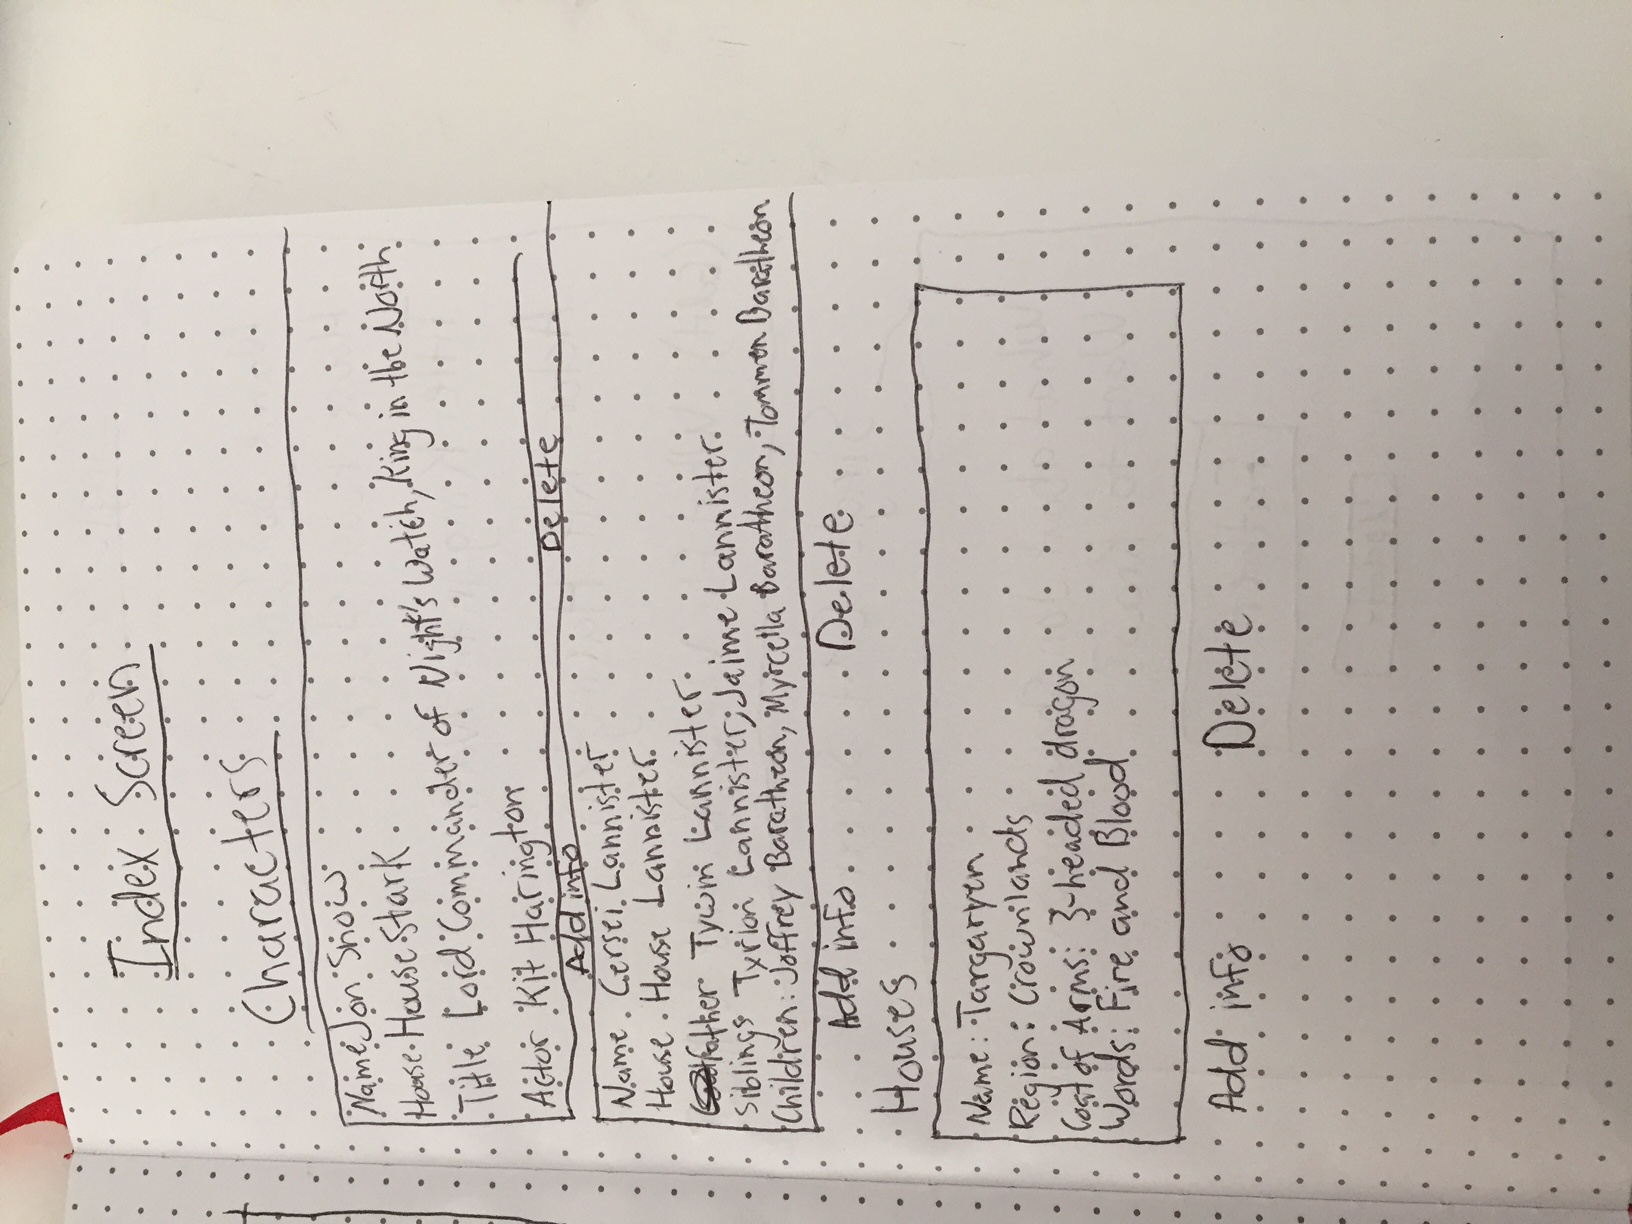 Index Screen
Characters
Name Jon Snow
House House Stark
Title Lord Commander of Night's Watch, King in the North
Actor Kit Harington
Add info Delete
Name Cersei Lannister
House House Lannister
father Tywin Lannister
Siblings Tyrion Lannister, Jaime Lannister
Children: Joffrey Baratheon, Myrcella Baratheon, Tommen Baratheon
Add info Delete
Houses
Name: Targaryen
Region: Crownlands
Coat of Arms: 3-headed dragon
Words: Fire and Blood
Add info Delete